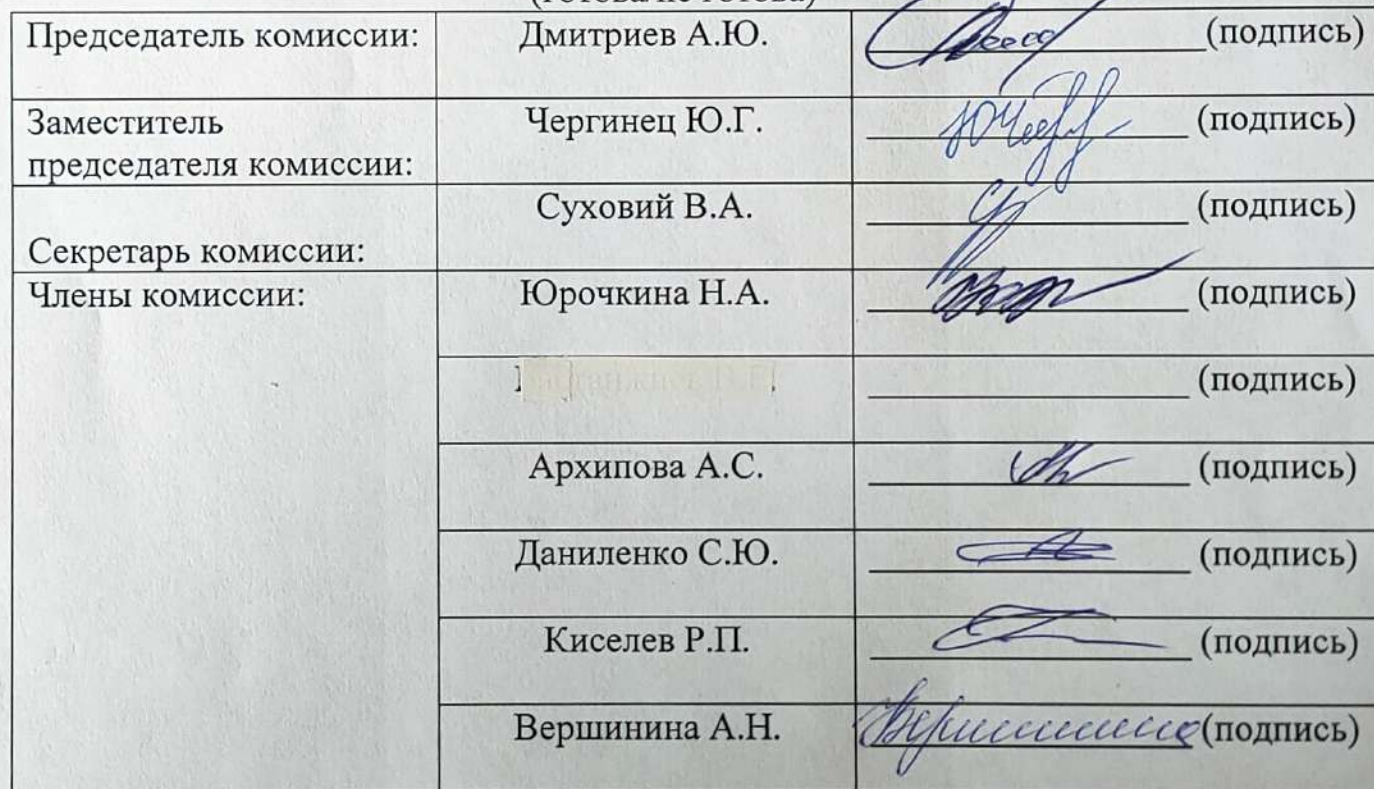 (готова/не готова)
Председатель комиссии: Дмитриев А.Ю. (подпись)
Заместитель председателя комиссии: Чергинец Ю.Г. (подпись)
Секретарь комиссии: Суховий В.А. (подпись)
Члены комиссии: Юрочкина Н.А. (подпись)
(подпись)
Архипова А.С. (подпись)
Даниленко С.Ю. (подпись)
Киселев Р.П. (подпись)
Вершинина А.Н. (подпись)